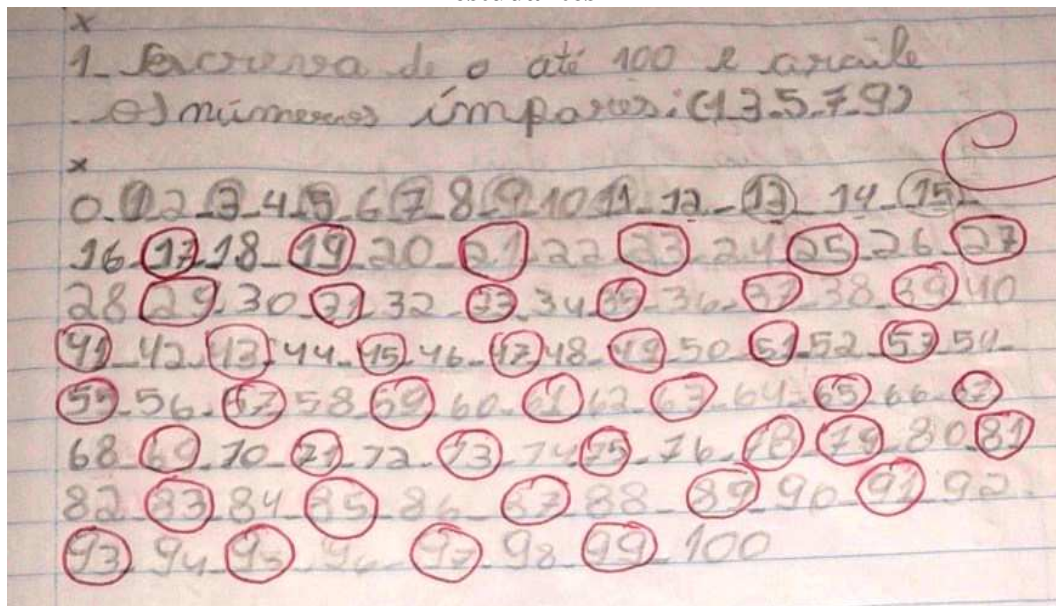 x
1- Escreva de 0 até 100 e circule
os números ímpares: (1.3.5.7.9)
x
0-1 2-3-4-5-6-7-8-9-10-11-12-13-14-15-
16-17-18-19-20-21-22-23-24-25-26-27
28-29-30-31-32-33-34-35-36-37-38-39-40
41-42-43-44-45-46-47-48-49-50-51-52-53-54-
55-56-57-58-59-60-61-62-63-64-65-66-67
68-69-70-71-72-73-74-75-76-78-79-80-81
82-83-84-85-86-87-88-89-90-91-92-
93-94-95-96-97-98-99-100